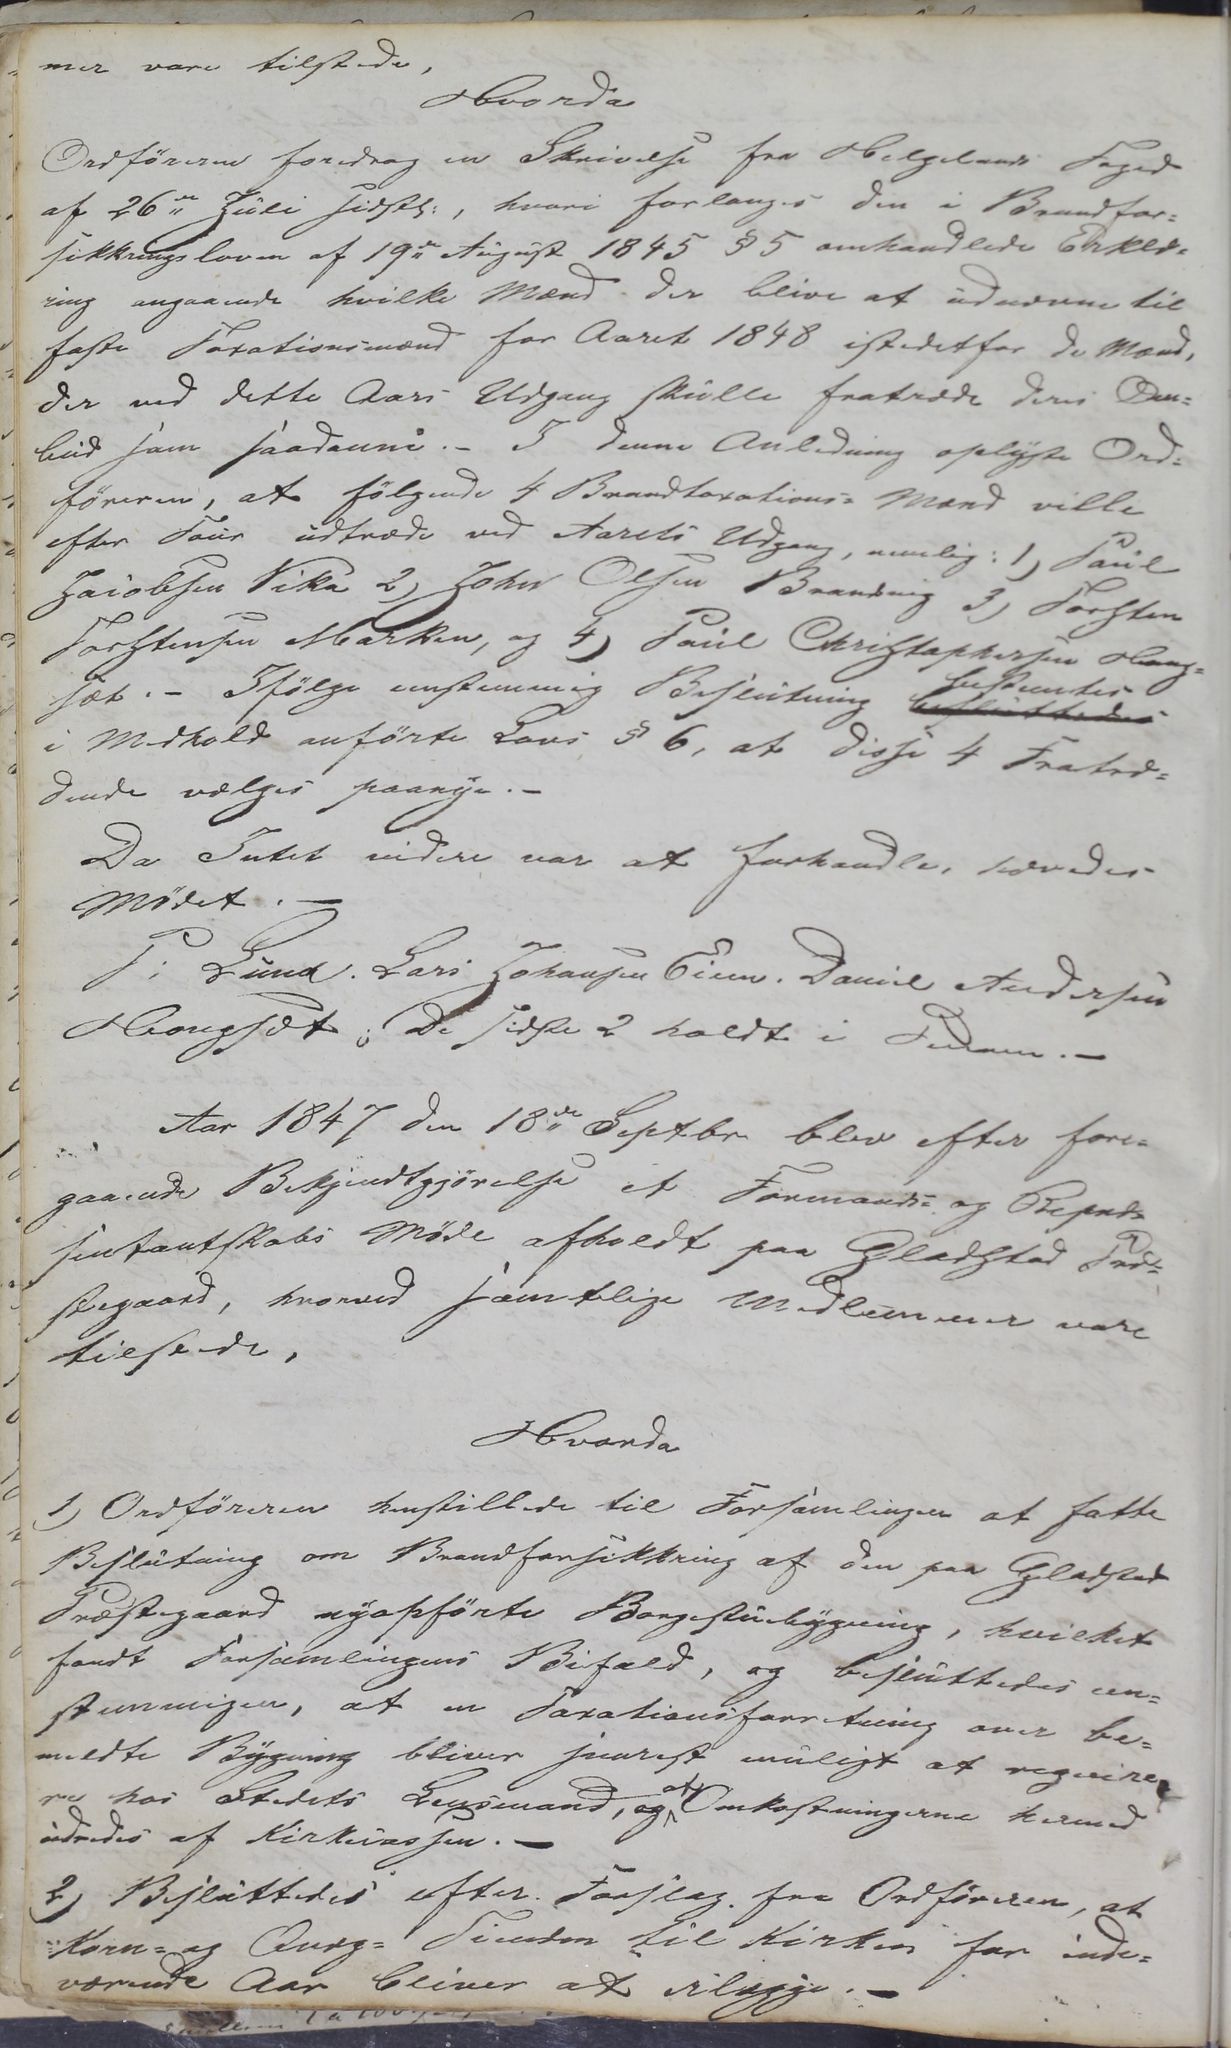 mer vare tilstede,
Hvorda
Ordföreren foredrog en Skrivelse fra Helgelands Foged
af 26de Juli sidstl:, hvori forlanges den i Brandfor=
sikkringsloven af 19de August 1845 § 5 omhandlede Erklæ=
ring angaaende hvilke Mænd der blive at udnævne til
faste Taxationsmænd for Aaret 1848 istedetfor de Mænd,
der ved dette Aars Udgang skulle fratræde deres Om=
bud som saadanne. - I denne Anledning oplyste Ord=
föreren, at fölgende 4 Brandtaxations= Mænd ville
efter Tour udtræde ved Aarets Udgang, nemlig: 1) Paul
Jacobsen Vika 2) John Olsen Brandvig 3) Torsten
Torstensen Marken, og 4) Paul Christophersen Houg=
sæt. - Ifölge eenstemmig Beslutning bestemtes besluttedes
i Medhold anförte Lovs § 6, at disse 4 Fratræ=
dende vælges paanye. -
Da Intet videre var at forhandle, hævedes
Mödet. -
P: Lund. Lars Johansen Eiem. Daniel Andersen
Hougsæt, De sidste 2 holdt i Pennen. -
Aar 1847 den 18de Septbr blev efter fore=
gaaende Bekjendtgjörelse et Formands= og Repræ=
sentantskabs Möde afholdt paa Gladstad Præ=
stegaard, hvorved samtlige Medlemmer vare
tilstede,
Hvorda
1) Ordföreren henstillede til Forsamlingen at fatte
Beslutning om Brandforsikkring af den paa Gladstad
Præstegaard nyopförte Borgestuebygning, hvilket
fandt Forsamlingens Bifald, og besluttedes een=
stemmigen, at en Taxationsforretning over be=
meldte Bygning bliver snarest muligt at reqvire=
re hos Stedets Lensmand, og at Omkostningerne herved
udredes af Kirkecassen. -
2) Besluttedes efter Forslag fra Ordföreren, at
Korn= og Qvæg= Tienden til Kirken for inde=
værende Aar bliver at erlægge. -